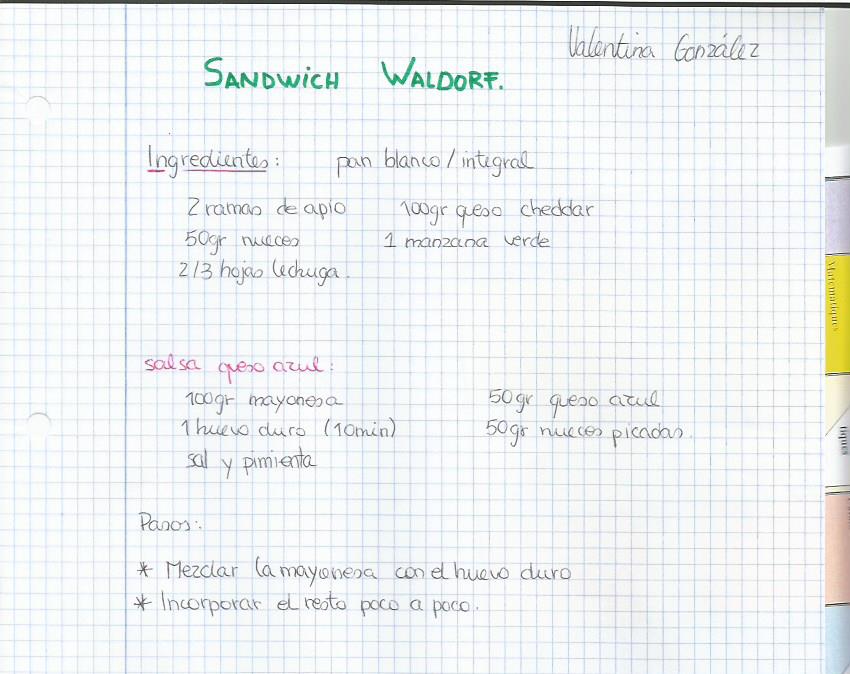 Valentina González
SANDWICH WALDORF.
Ingredientes: pan blanco/integral
2 ramas de apio 100gr queso cheddar
50gr nueces 1 manzana verde
2/3 hojas lechuga.
salsa queso azul:
100gr mayonesa 50gr queso azul
1 huevo duro (10min) 50gr nueces picadas.
sal y pimienta
Pasos:
* Mezclar la mayonesa con el huevo duro
* Incorporar el resto poco a poco.
Matemàtiques